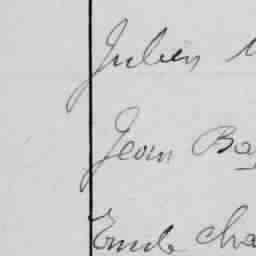 Julien
Jean Ba
Emile Cha